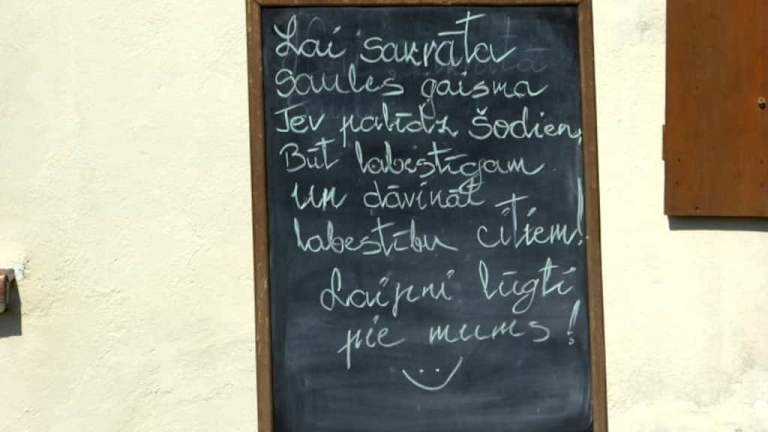 Lai sakrāta
saules gaisma
Tev palīdz šodien,
Būt labestīgam
un dāvināt
labestību citiem!
Laipni lūgti
pie mums!